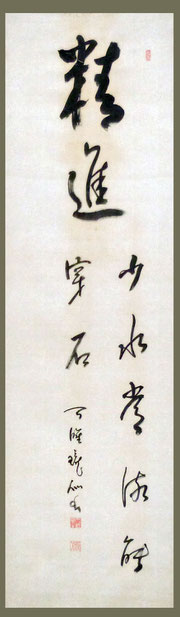 精進
少水常流能
穿石